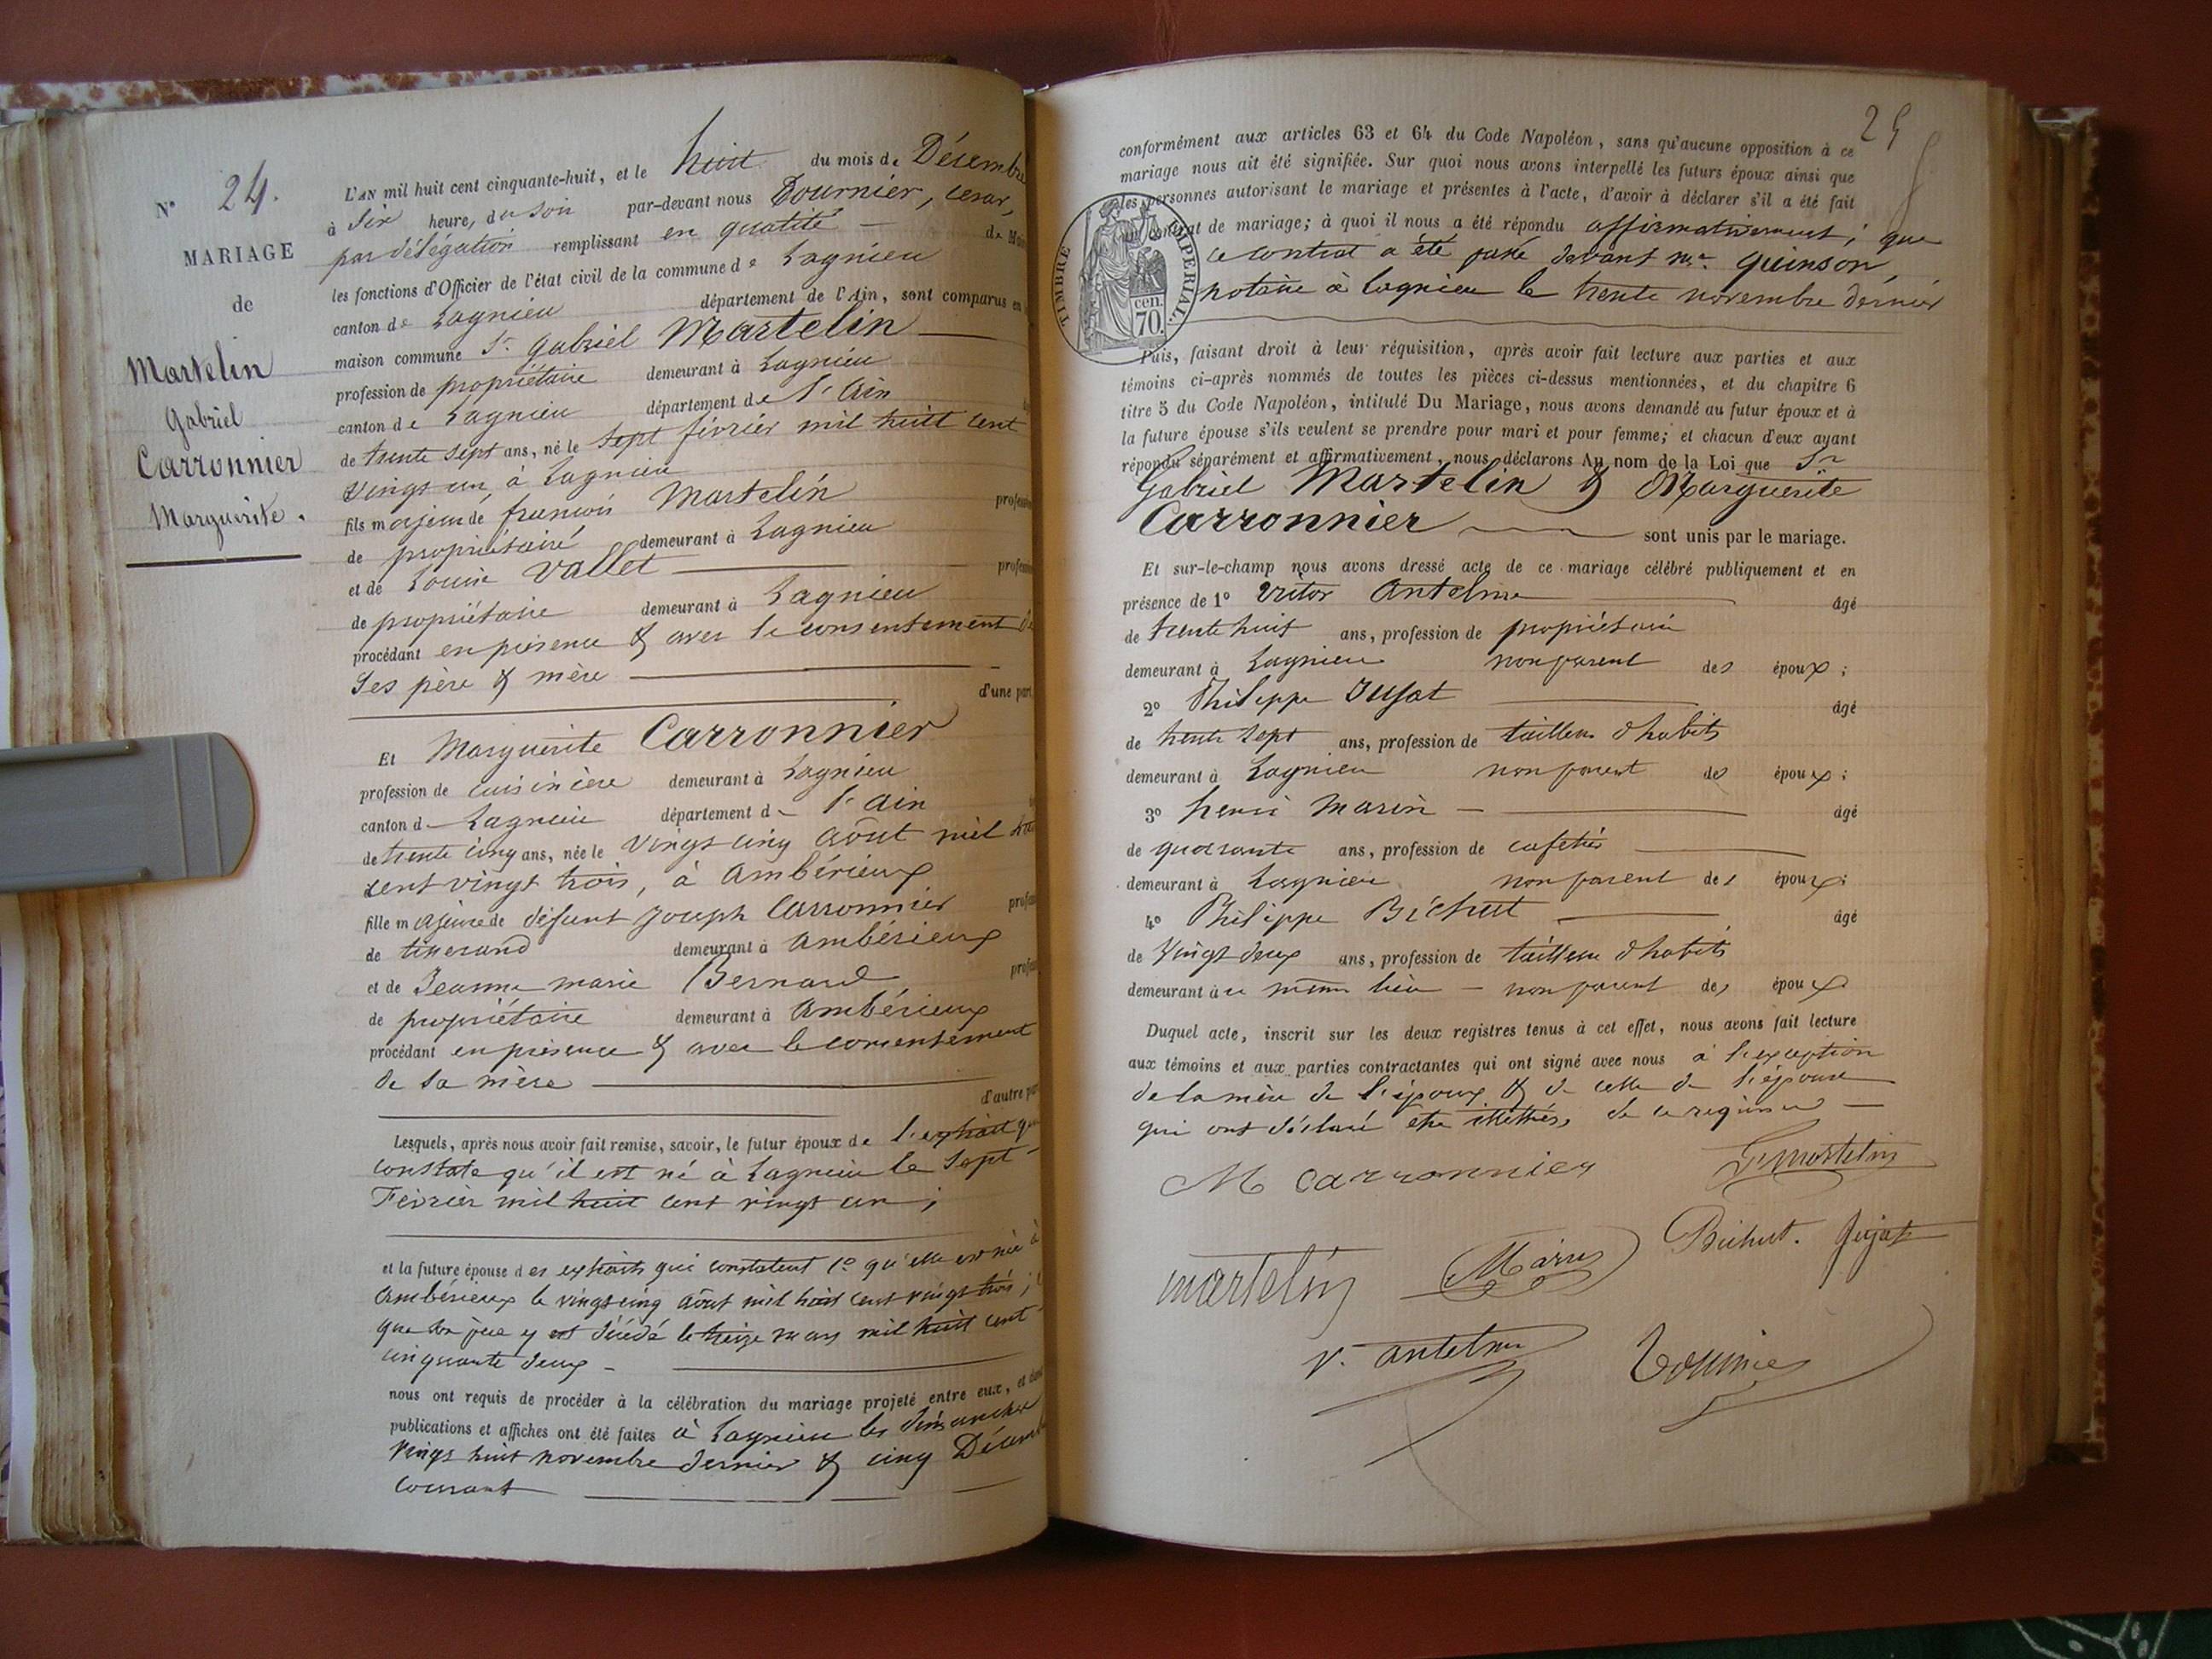 N° 24.
MARIAGE
de
Martelin
Gabriel
Carronnier
Marguerite.
L'AN mil huit cent cinquante-huit, et le huit du mois de Décembre
à six heure, du soir par-devant nous Tournier, Cesar,
par délégation remplissant en qualité de
les fonctions d'Officier de l'état civil de la commune de Lagnieu
canton de Lagnieu département de l'Ain, sont comparus en
maison commune Sr. Gabriel Martelin
profession de propriétaire demeurant à Lagnieu
canton de Lagnieu département de l'Ain
de trente sept ans, né le sept février mil huit cent
vingt un, à Lagnieu
fils majeur de françois Martelin
de propriétaire demeurant à Lagnieu
et de Louise Vallet
de propriétaire demeurant à Lagnieu
procédant en présence & avec le consentement de
ses père & mère
d'une part,
Et Marguerite Carronnier
profession de cuisinière demeurant à Lagnieu
canton de Lagnieu département de l'Ain
de trente cinq ans, née le vingt cinq août mil huit
cent vingt trois, à Ambérieux
fille majeure de défunt Joseph Carronnier
de tisserand demeurant à Ambérieux
et de Jeanne marie Bernard
de propriétaire demeurant à Ambérieux
procédant en présence & avec le consentement
de sa mère
d'autre part
Lesquels, après nous avoir fait remise, savoir, le futur époux de l'extrait qui
constate qu'il est né à Lagnieu le sept
Février mil huit cent vingt un ;
et la future épouse des extraits qui constatent 1° qu'elle est née à
Ambérieux le vingt cinq août mil huit cent vingt trois ;
que son père y est décédé le treize mars mil huit cent
cinquante deux -
nous ont requis de procéder à la célébration du mariage projeté entre eux, et
publications et affiches ont été faites à Lagnieu les dimanches
vingt huit novembre dernier & cinq Décembre
courant
25
conformément aux articles 63 et 64 du Code Napoléon, sans qu'aucune opposition à ce
mariage nous ait été signifiée. Sur quoi nous avons interpellé les futurs époux ainsi que
les personnes autorisant le mariage et présentes à l'acte, d'avoir à déclarer s'il a été fait
un contrat de mariage; à quoi il nous a été répondu affirmativement ; que
le contrat a été passé devant Mr. Quinson,
notaire à Lagnieu le trente novembre dernier
TIMBRE IMPERIAL
70 cen.
Puis, faisant droit à leur réquisition, après avoir fait lecture aux parties et aux
témoins ci-après nommés de toutes les pièces ci-dessus mentionnées, et du chapitre 6
titre 5 du Code Napoléon, intitulé Du Mariage, nous avons demandé au futur époux et à
la future épouse s'ils veulent se prendre pour mari et pour femme; et chacun d'eux ayant
répondu séparément et affirmativement, nous déclarons Au nom de la Loi que Sr
Gabriel Martelin & Marguerite
Carronnier sont unis par le mariage.
Et sur-le-champ nous avons dressé acte de ce mariage célébré publiquement et en
présence de 1° Victor Antelme âgé
de trente huit ans, profession de propriétaire
demeurant à Lagnieu non parent des époux ;
2° Philippe Jujat âgé
de trente sept ans, profession de tailleur d'habits
demeurant à Lagnieu non parent des époux ;
3° henri Marin âgé
de quarante ans, profession de cafetier
demeurant à Lagnieu non parent des époux ;
4° Philippe Béchut âgé
de vingt deux ans, profession de tailleur d'habits
demeurant à ce même lieu - non parent des époux
Duquel acte, inscrit sur les deux registres tenus à cet effet, nous avons fait lecture
aux témoins et aux parties contractantes qui ont signé avec nous à l'exception
de la mère de l'époux & de celle de l'épouse
qui ont déclaré être illettrées de ce requises
M Carronnier G. Martelin
martelin Marin Bichut. Jujat
V. antelme Tournier